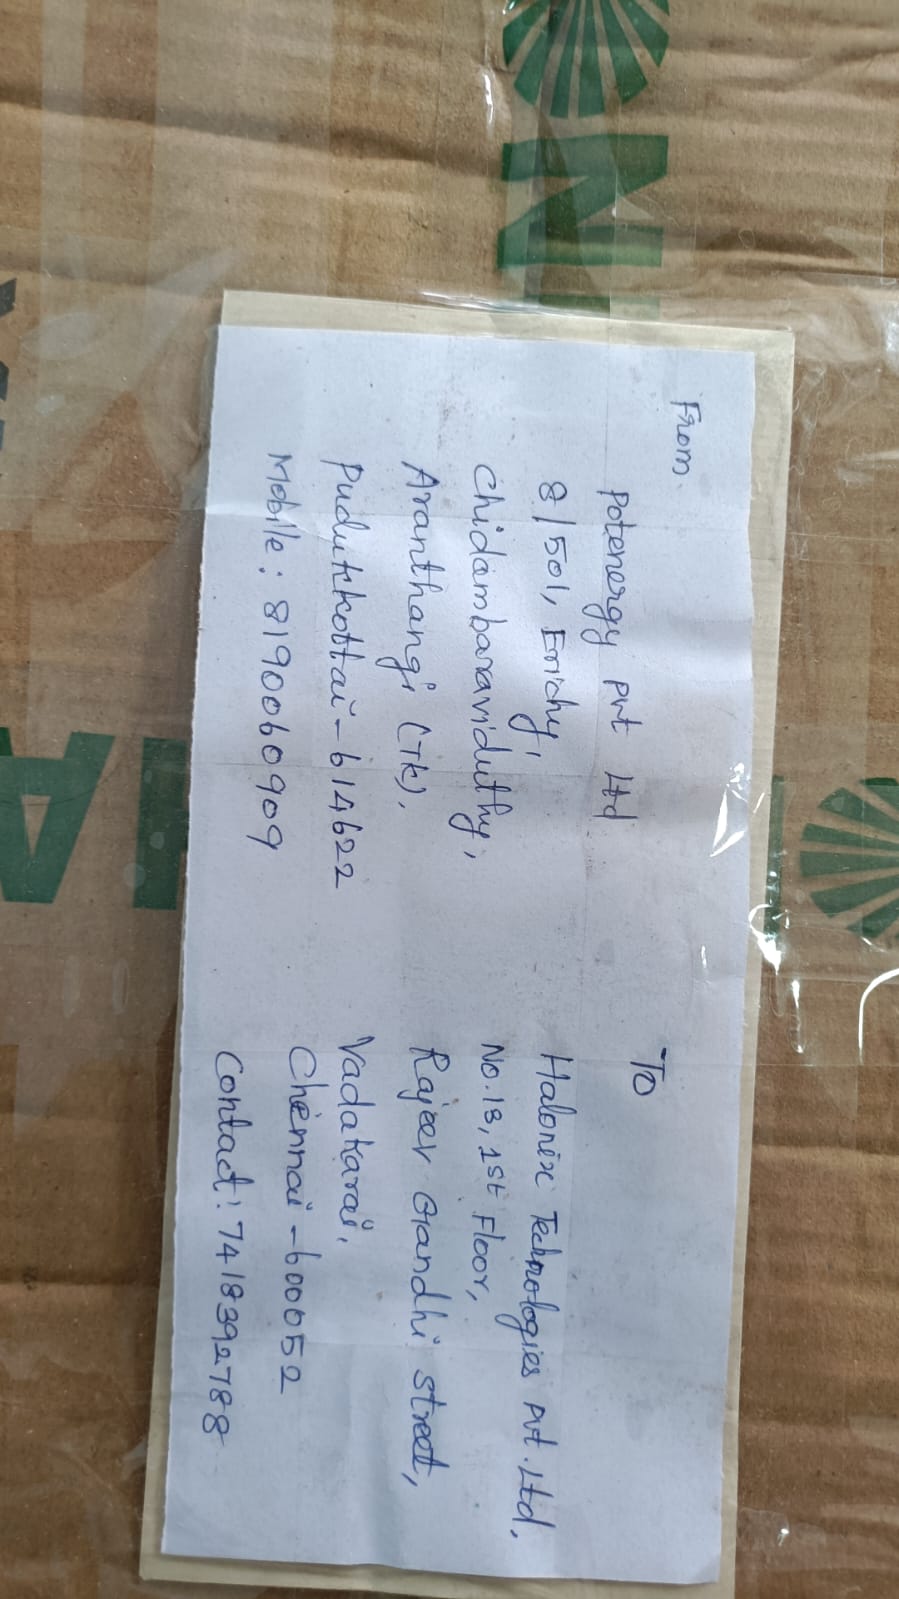 From
Potenergy pvt Ltd
8/501, Erichy,
Chidambaraviduthy,
Aranthangi (Tk),
Pudukkottai - 614622
Mobile: 8190060909
TO
Halonix Technologies pvt. Ltd,
No. 13, 1st Floor,
Rajeev Gandhi street,
Vadakarai,
Chennai - 600052
Contact: 7418392788